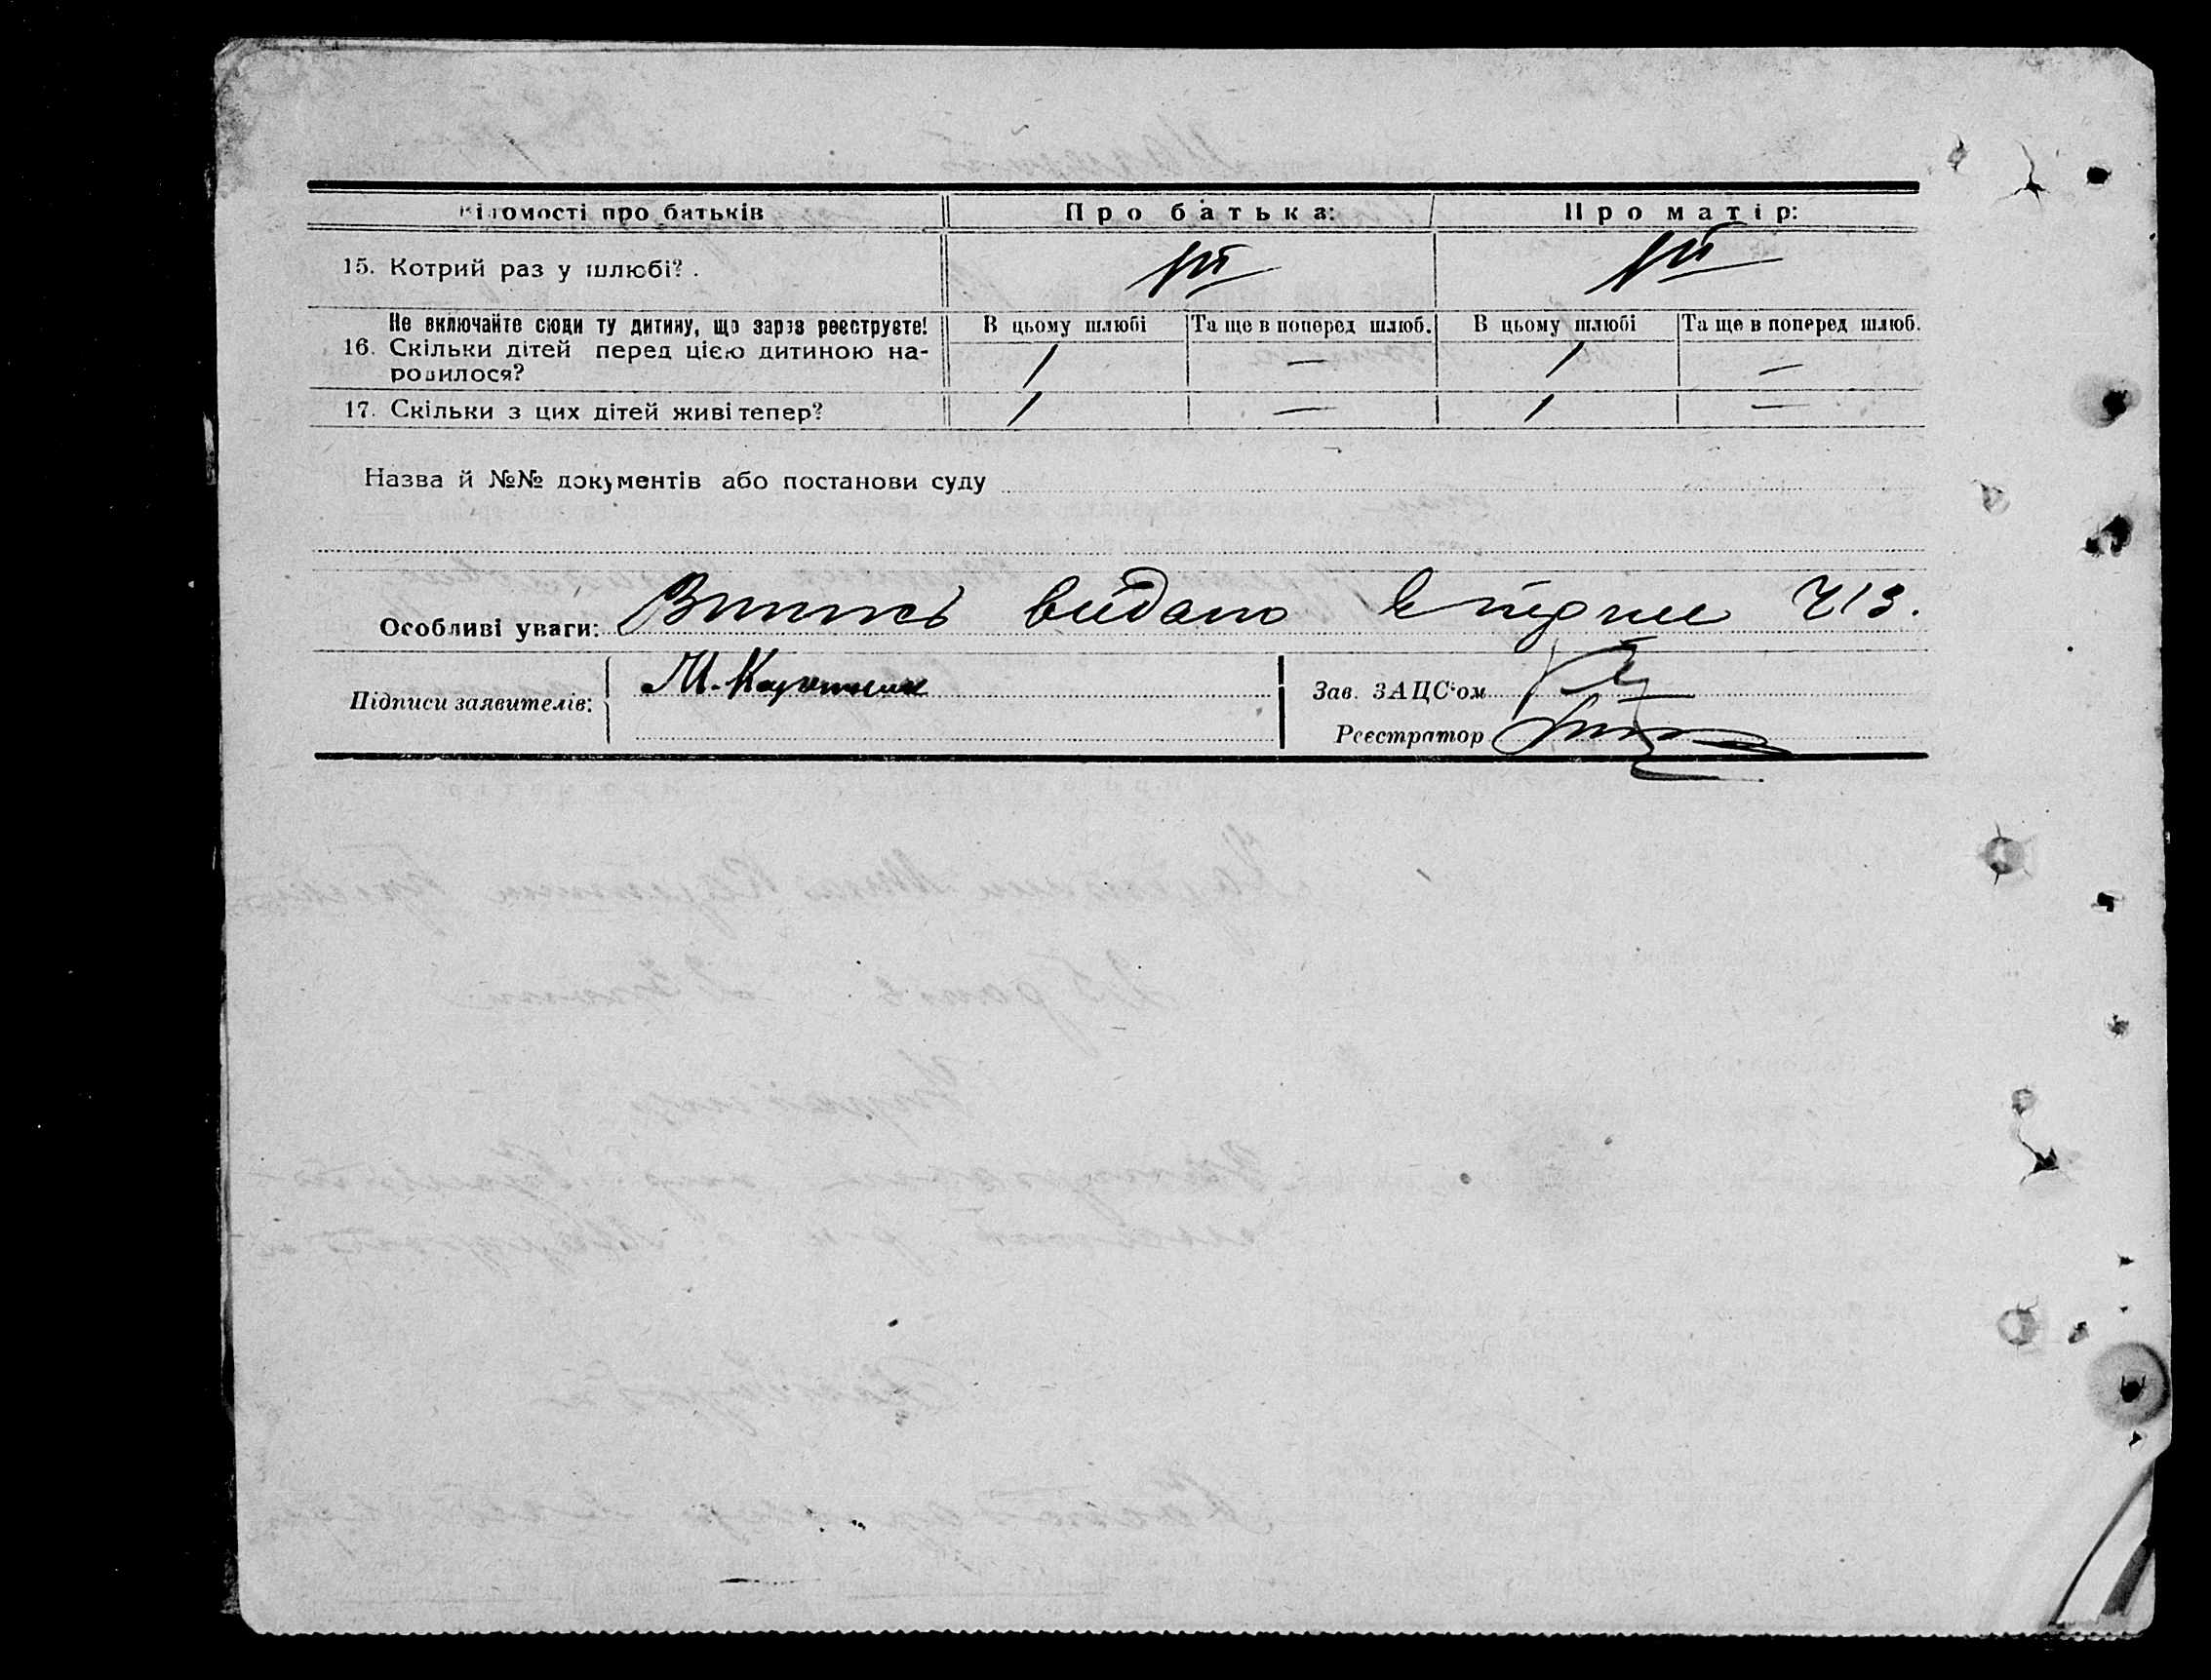 Відомості про батьків
Про батька:
Про матір:
15. Котрий раз у шлюбі?.
1й
1й
Не включайте сюди ту дитину, що зараз реєструєте!
16. Скільки дітей перед цією дитиною на-
родилося?
В цьому шлюбі
Та ще в поперед шлюб.
В цьому шлюбі
Та ще в поперед шлюб.
1 — 1 —
17. Скільки з цих дітей живі тепер?
1 — 1 —
Назва й №№ документів або постанови суду
Особливі уваги: Випись видано 713.
Підписи заявителів: М.
Зав. ЗАЦС'ом
Реєстратор